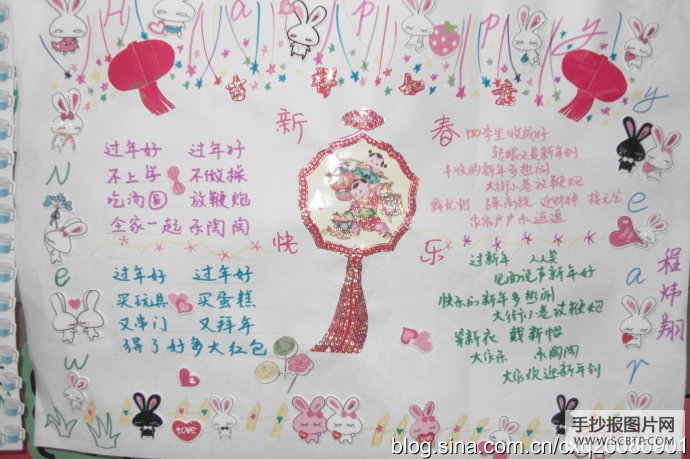 Happy
吉祥如意
新春
快乐
New
year
过年好 过年好
不上学 不做操
吃汤圆 放鞭炮
全家一起乐陶陶
过年好 过年好
买玩具 买蛋糕
又串门 又拜年
得了好多大红包
四季里收成好
转眼又是新年到
丰收的新年多热闹
大街小巷放鞭炮
踩高跷 迎财神 接元宝
家家户户永逍遥
过新年 人人笑
见面说声新年好
快乐的新年多热闹
大街小巷放鞭炮
穿新衣 戴新帽
大家乐 乐陶陶
大家欢迎新年到
程炜翔
LOVE
手抄报图片网
WWW.SCBTP.COM
blog.sina.com.cn/cxq20080901